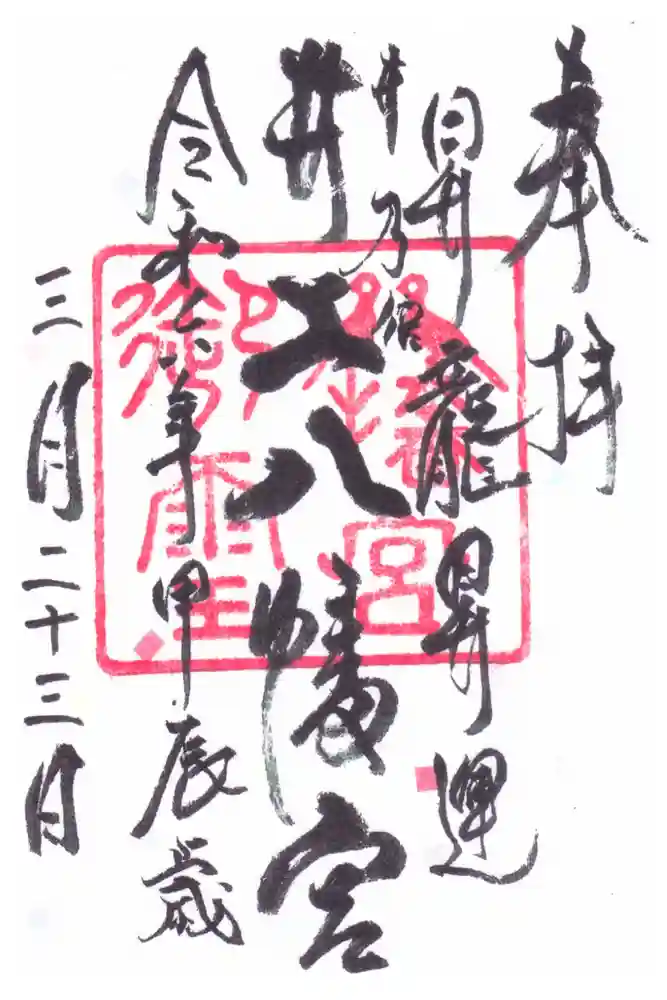 奉拝
昇龍昇運
井乃
井八幡宮
令和六年甲辰歳
三月二十三日